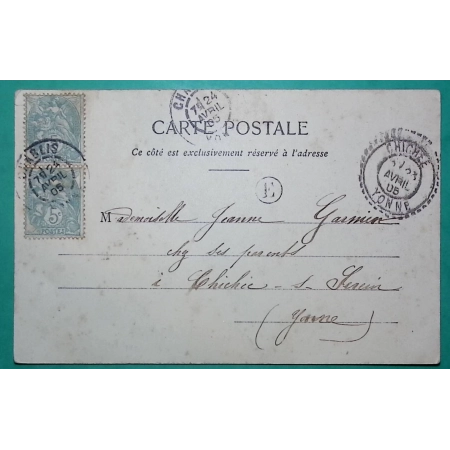 CHABLIS
7E 24
AVRIL
05
YON
CARTE POSTALE
Ce côté est exclusivement réservé à l'adresse
CHABLIS
7E 24
AVRIL
05
5c
POSTES
E
CHICHÉE
AVRIL
05
YONNE
Mademoiselle Jeanne Garnier
chez ses parents
à Chichée
(Yonne)